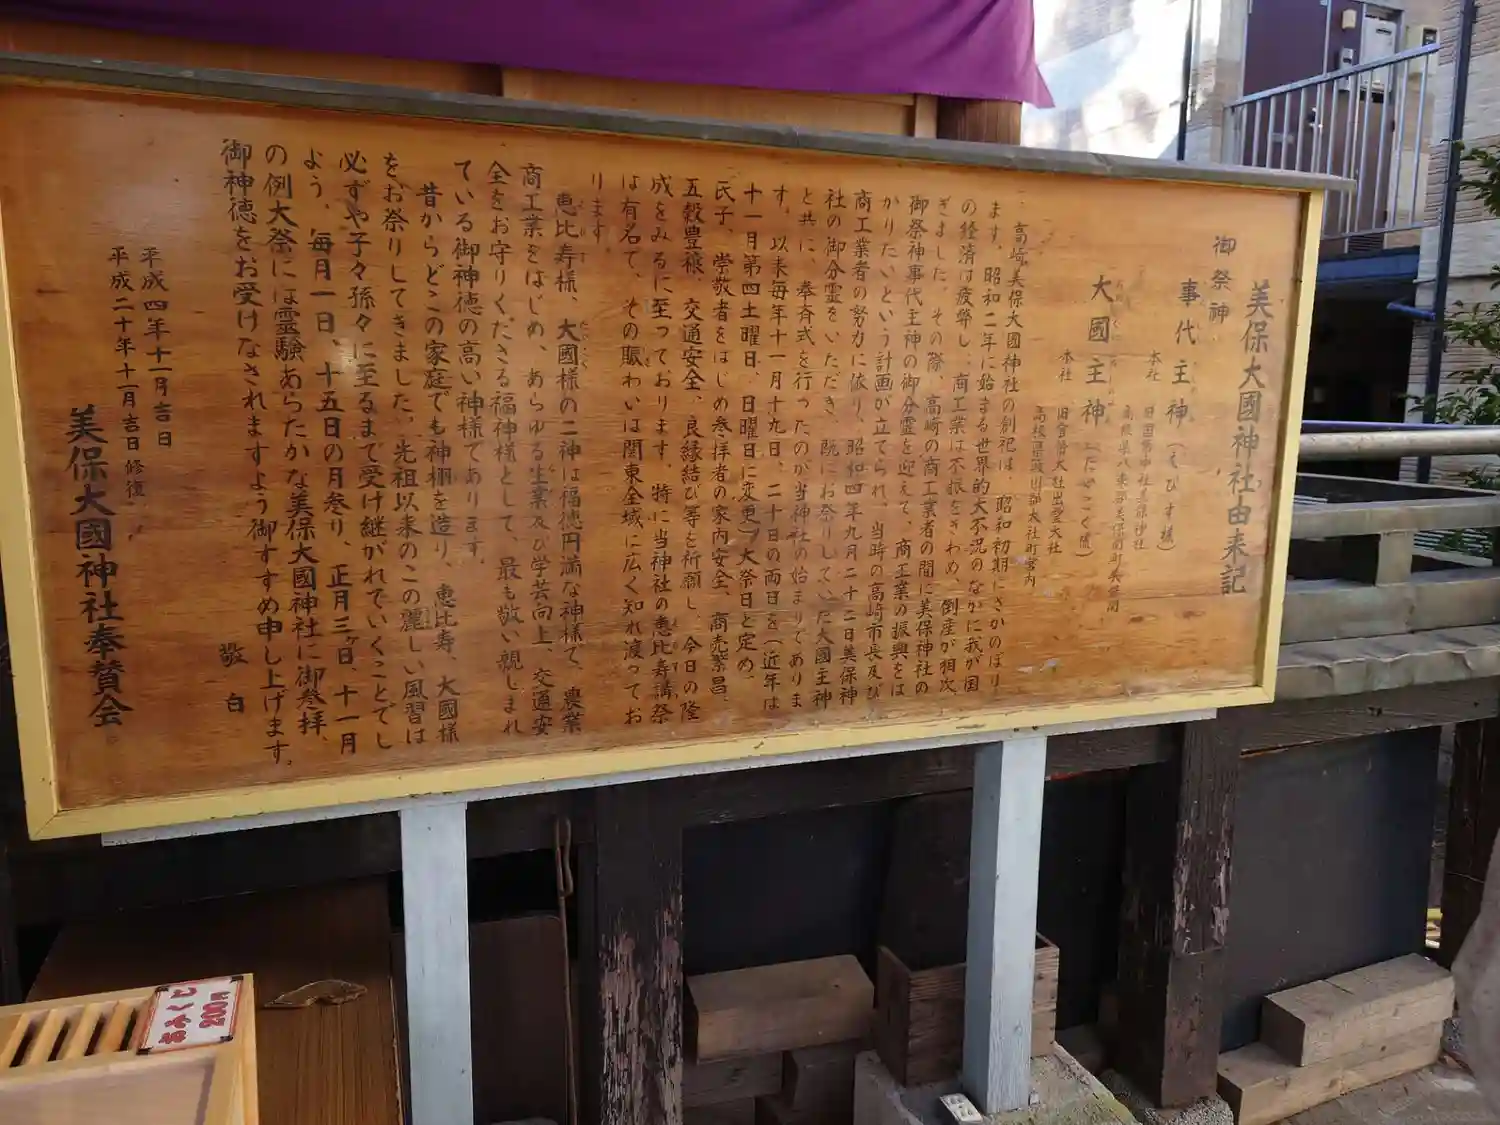 美保大國神社由来記
御祭神
事代主神(えびす様)
本社
旧国幣中社美保神社
大國主神(だいこく様)
本社
旧官幣大社出雲大社
高崎美保大國神社の創祀は、昭和初期にさかのぼり
ます。昭和二年に始まる世界的大不況のなかに我が国
の経済は疲弊し、商工業は不振をきわめ、倒産が相次
ぎました。その際、高崎の商工業者の間に美保神社の
御祭神事代主神の御分霊を迎えて、商工業の振興をは
かりたいという計画が立てられ、当時の高崎市長及び
商工業者の努力に依り、昭和四年九月二十二日美保神
社の御分霊をいただき、既にお祭りしていた大國主神
と共に、奉斉式を行ったのが当神社の始まりでありま
す。以来毎年十一月十九日、二十日の両日を(近年は
十一月第四土曜日、日曜日に変更)大祭日と定め、
氏子、崇敬者をはじめ参拝者の家内安全、商売繁昌、
五穀豊穣、交通安全、良縁結び等を祈願し、今日の隆
成をみるに至っております。特に当神社の恵比寿講祭
は有名で、その賑わいは関東全域に広く知れ渡ってお
ります。
恵比寿様、大國様の二神は福徳円満な神様で、農業
商工業をはじめ、あらゆる生業及び学芸向上、交通安
全をお守りくださる福神様として、最も敬い親しまれ
ている御神徳の高い神様であります。
昔からどこの家庭でも神棚を造り、恵比寿、大國様
をお祭りしてきました。先祖以来のこの麗しい風習は
必ずや子々孫々に至るまで受け継がれていくことでし
よう。毎月一日、十五日の月参り、正月三ヶ日、十一月
の例大祭には霊験あらたかな美保大國神社に御参拝、
御神徳をお受けなされますよう御すすめ申し上げます。
敬白
平成四年十一月吉日
平成二十年十一月吉日修復
美保大國神社奉賛会
200円